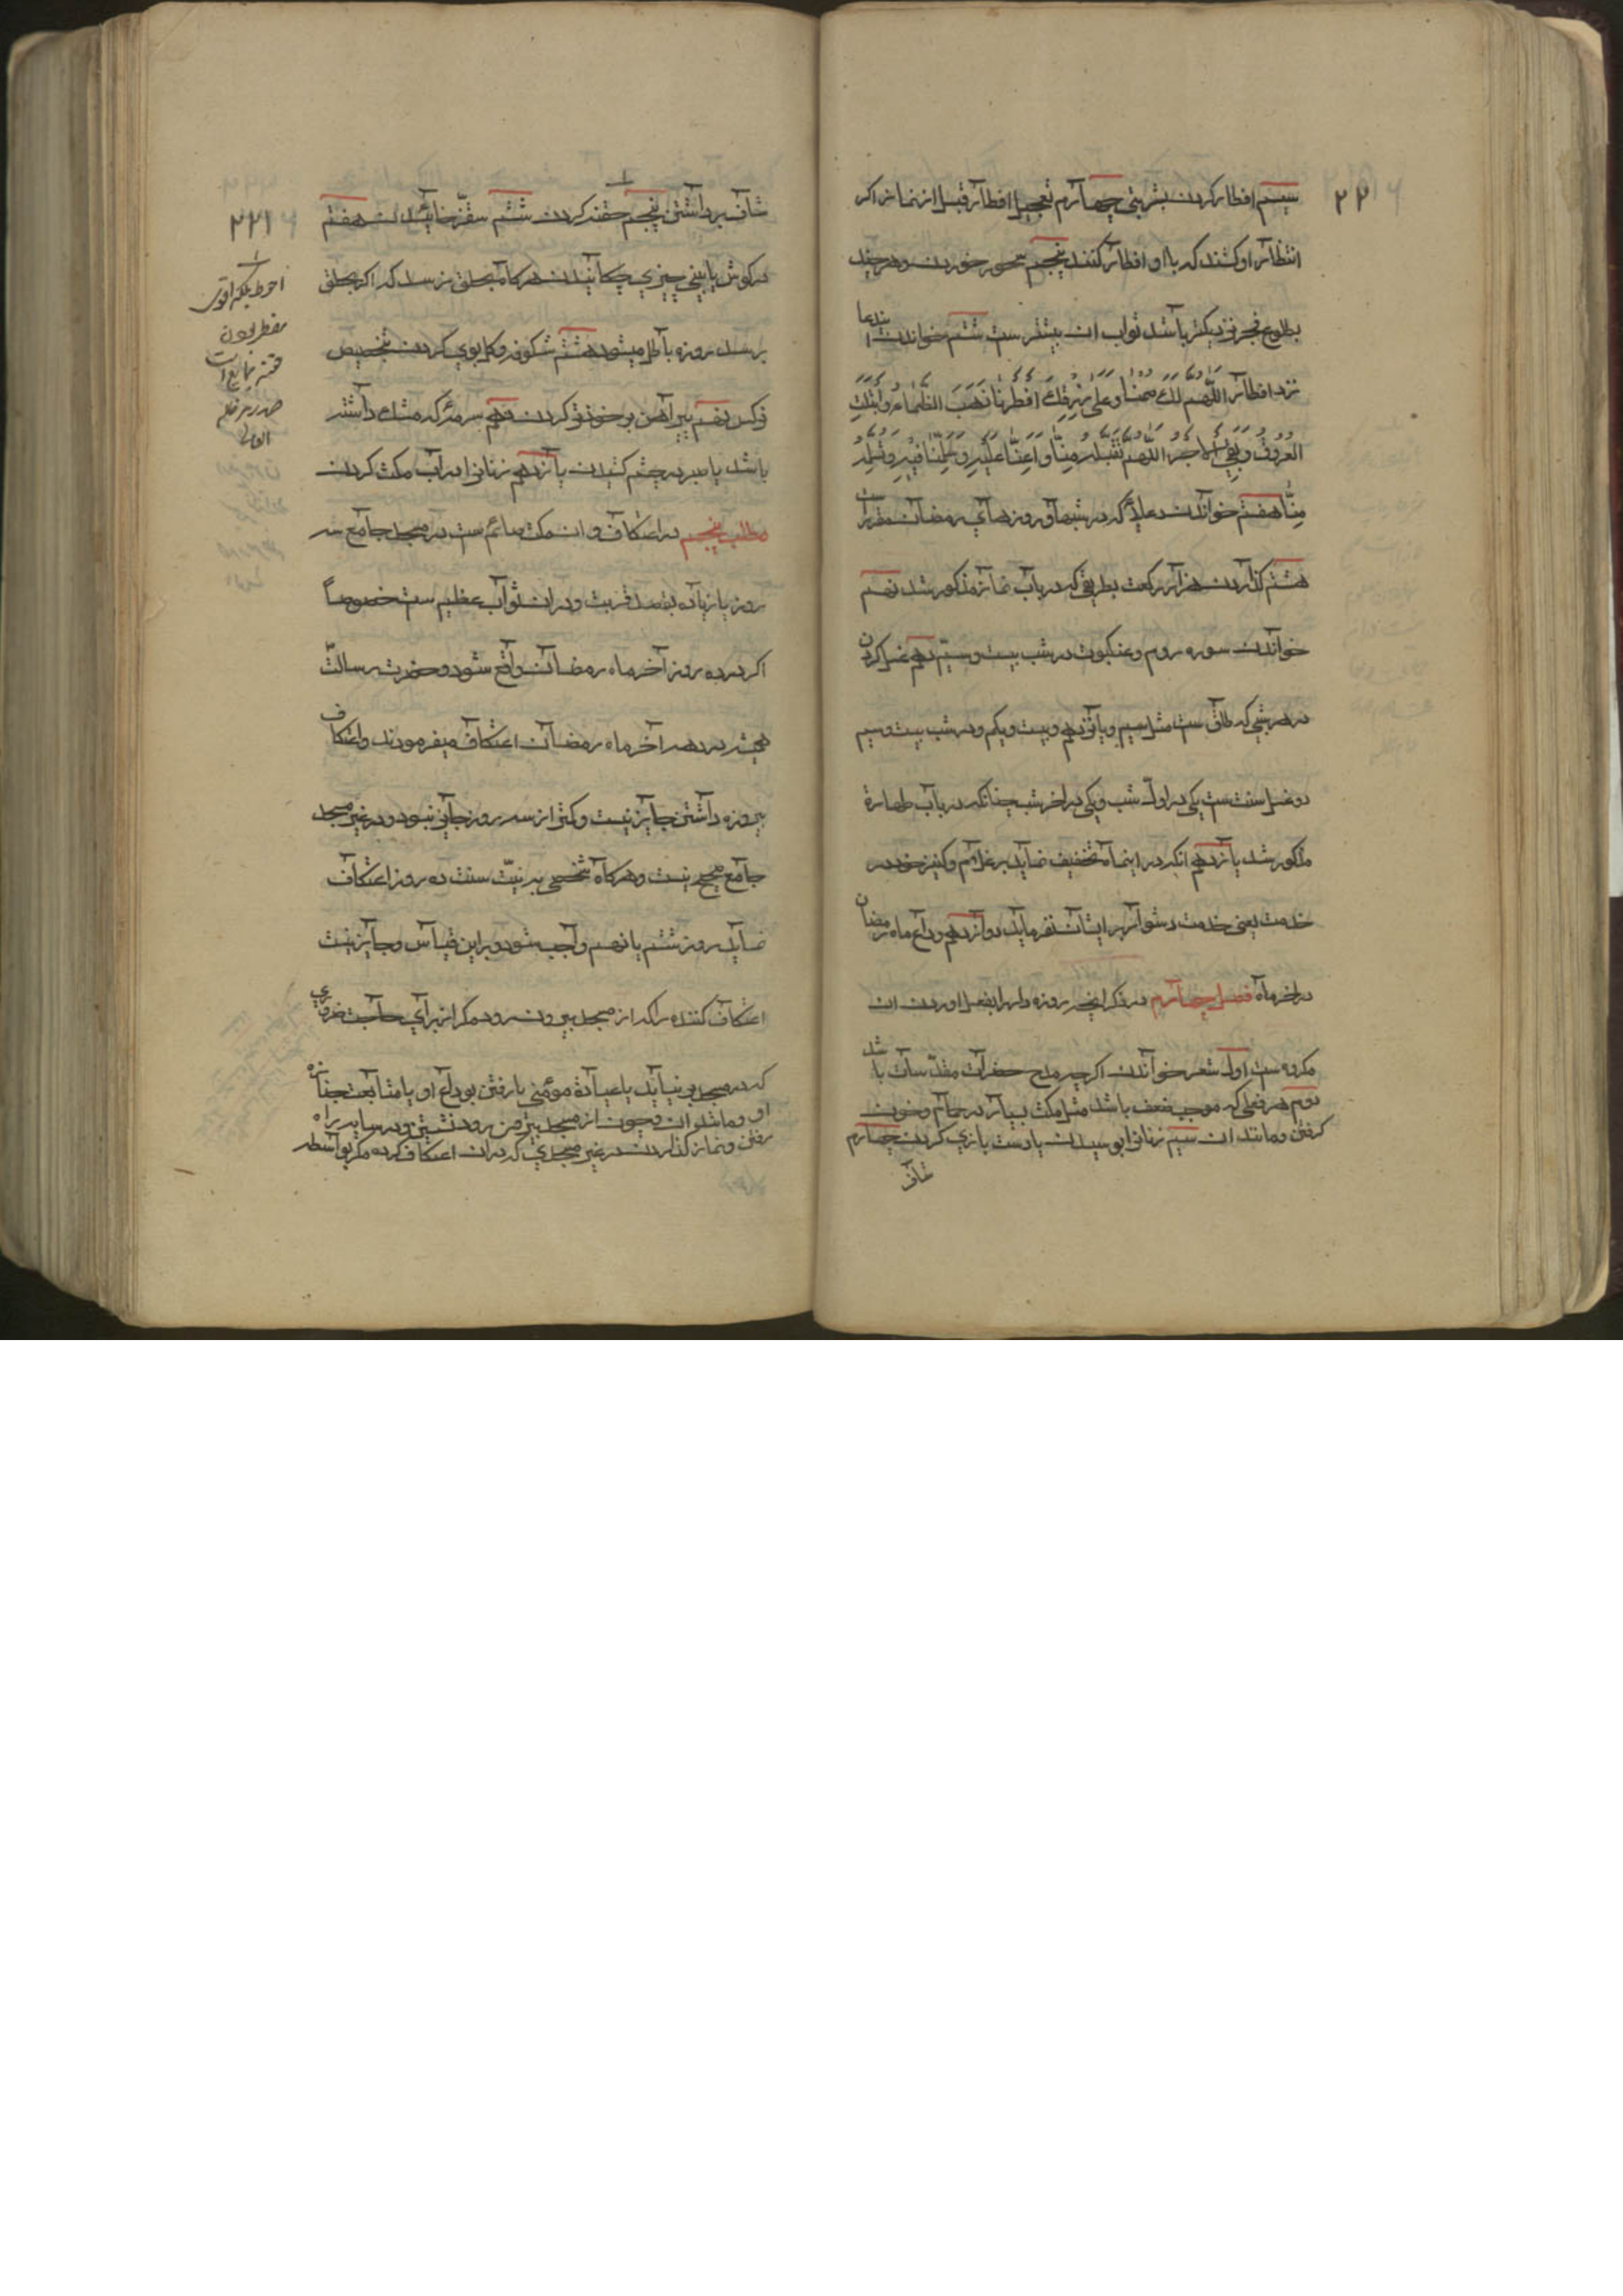 ۲۲
سیم افطار کردن بشربتی چهارم تعجیل افطار قبل از نماز اکر
انتظار او کشند که با او افطار کنند پنجم سحور خوردن و هر چند
بطلوع فجر نزدیکتر باشد ثواب ان بیشتر ست ششم خواندن
نزد افطار اللّهم لك صمنا و علی رزقك افطرنا ذهب الظماء و ابتلت
العروق و بقی الاجر اللّهم تقبله منّا و اعنّا علیه و سلّمنا فیه و تسلمه
منّا هفتم خواندن دعائی که در شبها و روزهای رمضان مقرر است
هشتم کذاردن هزار رکعت بطریقی که در باب نماز مذکور شد نهم
خواندن سوره روم و عنکبوت در شب بیست و سیّم دهم غسل کردن
در هر شبی که طاق ست مثل سیم و پانزدهم و بیست و یکم و در شب بیست و سیم
دو غسل سنت ست یکی در اول شب و یکی در اخر شب چنانکه در باب طهارة
مذکور شد یازدهم انکه در اینماه تخفیف نماید بر غلام و کنیز خود در
خدمت یعنی خدمت دشوار بر ایشان نفرماید دوازدهم وداع ماه رمضان
در اخر ماه فصل چهارم در ذکر انچه روزه دار را بفعل اوردن ان
مکروه ست اول شعر خواندن اکر چه مدح حضرات مقدسات باشد
دوم هر فعلی که موجب ضعف باشد مثل مکث بسیار در حمام و خون
کرفتن و مانند ان سیم زنانرا بوسیدن یا دست بازی کردن چهارم
شاف
۲۲۱
شاف برداشتن پنجم حقنه کردن ششم سقّز خائیدن هفتم
در کوش یا بینی چیزی چکانیدن هرکاه بحلق نرسد که اکر بحلق
برسد روزه باطل میشود هشتم شکوفه و کل بوی کردن بتخصیص
نرکس نهم پیراهن بر خود تر کردن دهم سرمهٔ که مشك داشته
باشد یا صبر در چشم کشیدن یازدهم زنانرا در اب مکث کردن
مطلب پنجم در اعتکاف و ان مکث صائم ست در مسجد جامع سه
روز یا زیاده بقصد قربت و در ان ثواب عظیم ست خصوصاً
اکر در ده روز آخر ماه رمضان واقع شود و حضرت رسالت
همیشه در دهه آخر ماه رمضان اعتکاف میفرمودند و اعتکاف
بیروزه داشتن جایز نیست و کمتر از سه روز جایز نبود و در غیر مسجد
جامع صحیح نیست و هرکاه شخصی به نیّت سنت ده روز اعتکاف
نماید روز ششم یا نهم واجب شود و بر این قیاس و جایز نیست
اعتکاف کننده را که از مسجد بیرون رود مکر از برای حاجت ضروری
که در مسجد بر نیاید یا عیادة مؤمنی یا رفتن بوداع او یا متابعت جنازه
او و مانند ان و چون از مسجد بیرون رود نشستن و در سایه راه
رفتن و نماز کذاردن در غیر مسجدی که در ان اعتکاف کرده مکر بواسطه
احوط بلکه اقوی
مفطر بودن
حقنه بمایع است
صدر
العالی